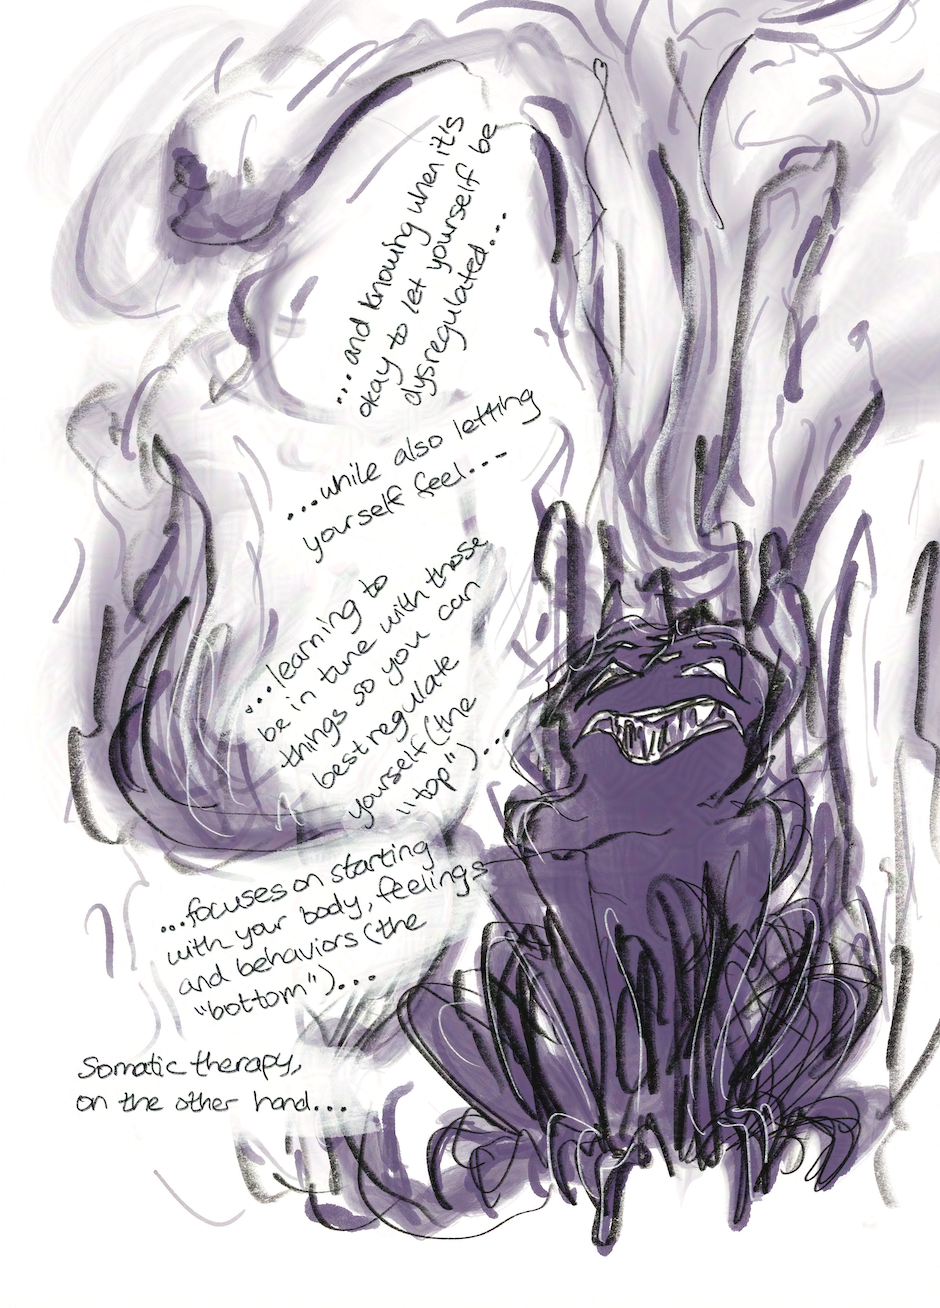 Somatic therapy,
on the other hand...
...focuses on starting
with your body, feelings
and behaviors (the
"bottom")...
...learning to
be in tune with those
things so you can
best regulate
yourself (the
"top")...
...while also letting
yourself feel...
...and knowing when it's
okay to let yourself be
dysregulated...